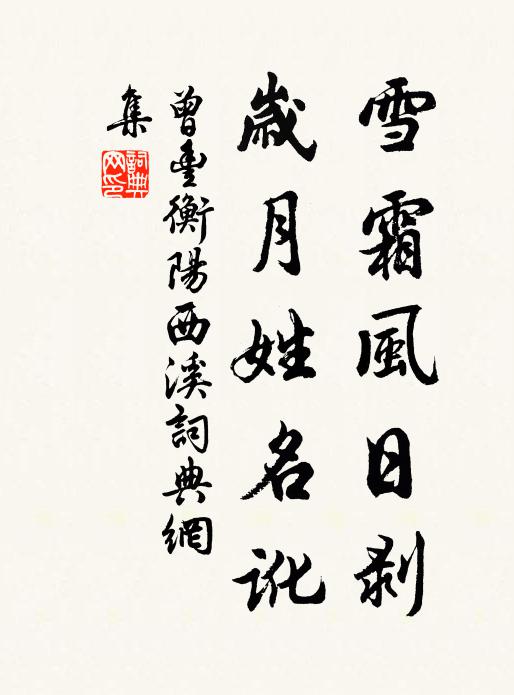 雪霜風日剥
歲月姓名訛
曾豊衡陽西溪詞典網
集
詞典
网印